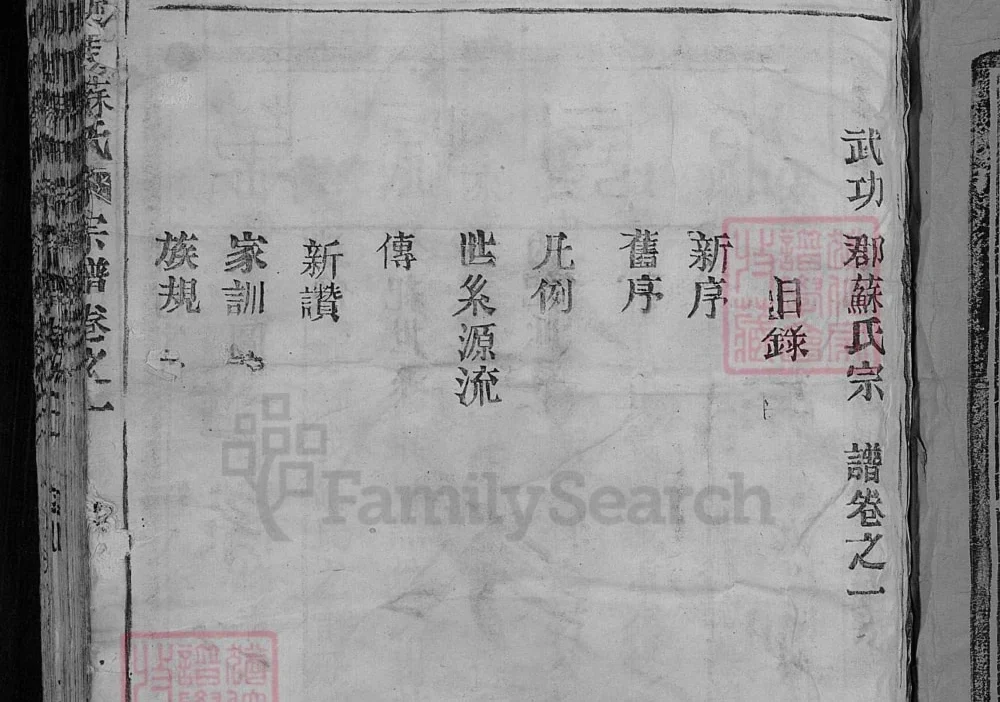 武功郡蘇氏宗譜卷之一
目錄
新序
舊序
凡例
世系源流
傳
新讚
家訓
族規
蘇氏宗譜卷之一
FamilySearch